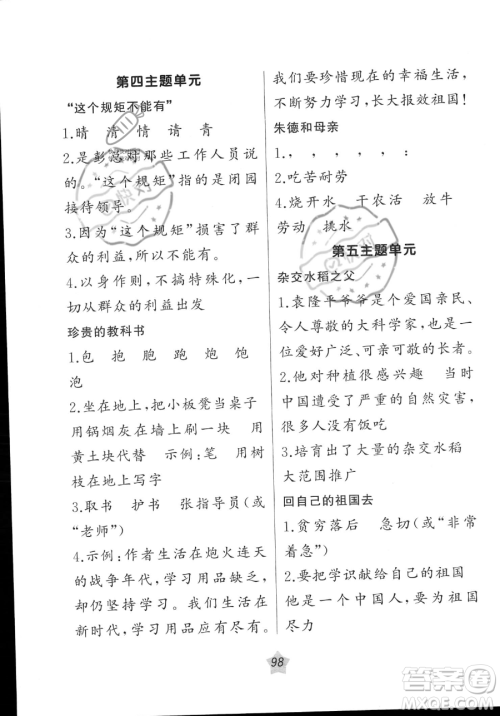 第四主题单元
“这个规矩不能有”
1.晴 清 情 请 青
2.是彭总对那些工作人员说
的。“这个规矩”指的是闭园
接待领导。
3.因为“这个规矩”损害了群
众的利益,所以不能有。
4.以身作则,不搞特殊化,一
切从群众的利益出发
珍贵的教科书
1.包 抱 胞 跑 炮 饱
泡
2.坐在地上,把小板凳当桌子
用锅烟灰在墙上刷一块 用
黄土块代替 示例:用树
枝在地上写字
3.取书 护书 张指导员(或
“老师”)
4.示例:作者生活在炮火连天
的战争年代,学习用品缺乏,
却仍坚持学习。我们生活在
蓝天下,学习用品应有尽有。
我们要珍惜现在的幸福生活,
努力学习,长大报效祖国!
朱德和母亲
1., , , , :
2.吃苦耐劳
4.烧开水 干农活 放牛
劳动 挑水
第五主题单元
杂交水稻之父
1.袁隆平爷爷是个爱国亲民、
令人尊敬的大科学家,也是一
位爱好广泛、可亲可敬的长者。
2.他对种植很感兴趣 当时
中国遭遇了严重的自然灾害,
很多人没有饭吃
3.培育出了大量的杂交水稻
大范围推广
回自己的祖国去
1.贫穷落后 急切(或“非常
着急”)
2.要把学识献给自己的祖国
他是一个中国人,要为祖国
尽力
98